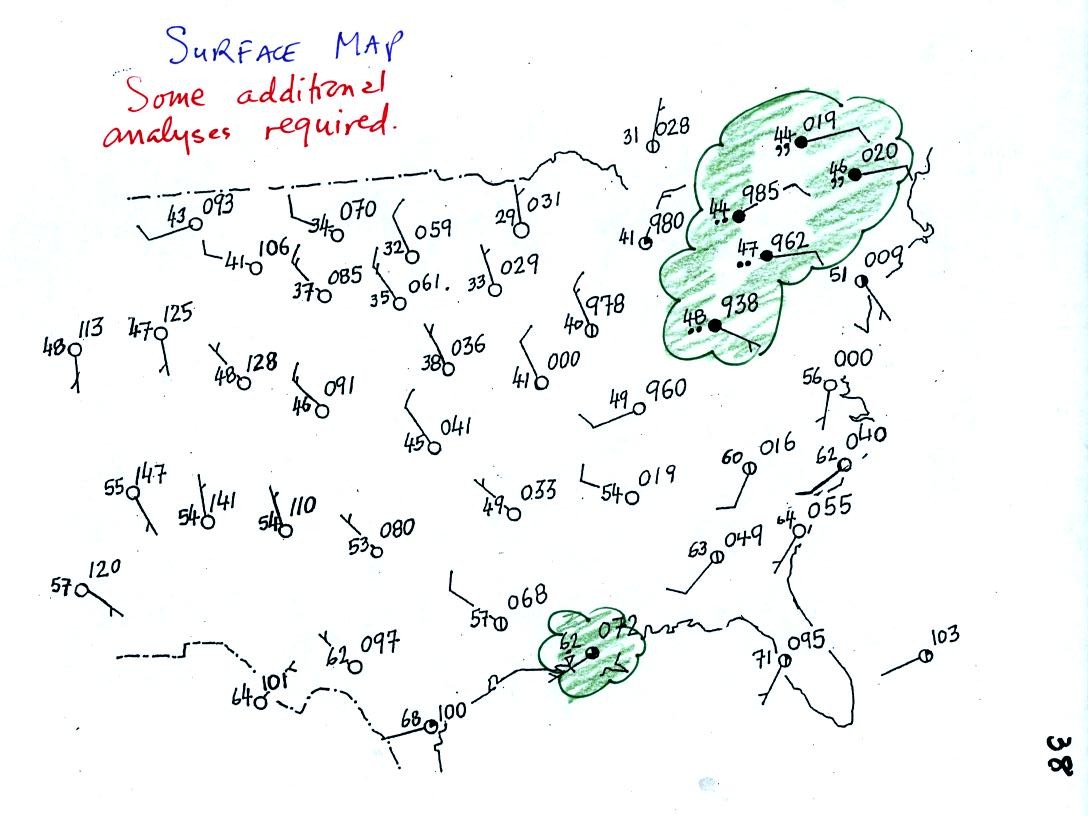 SURFACE MAP
Some additional
analyses required.
31 028
44 019
46 020
43 093
34 070
32 059
29 031
41 980
44 985
47 962
51 009
41 106
37 085
35 061.
33 029
40 978
48 938
48 113
47 125
48 128
46 091
38 036
41 000
49 960
56 000
45 041
60 016
62 040
55 147
54 141
54 110
53 080
49 033
54 019
63 049
64 055
57 120
57 068
62 072
62 097
64 101
68 100
71 095
103
38